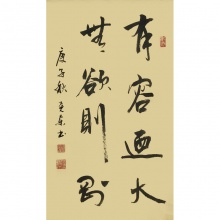 有容迺大
無欲則剛
庚子秋